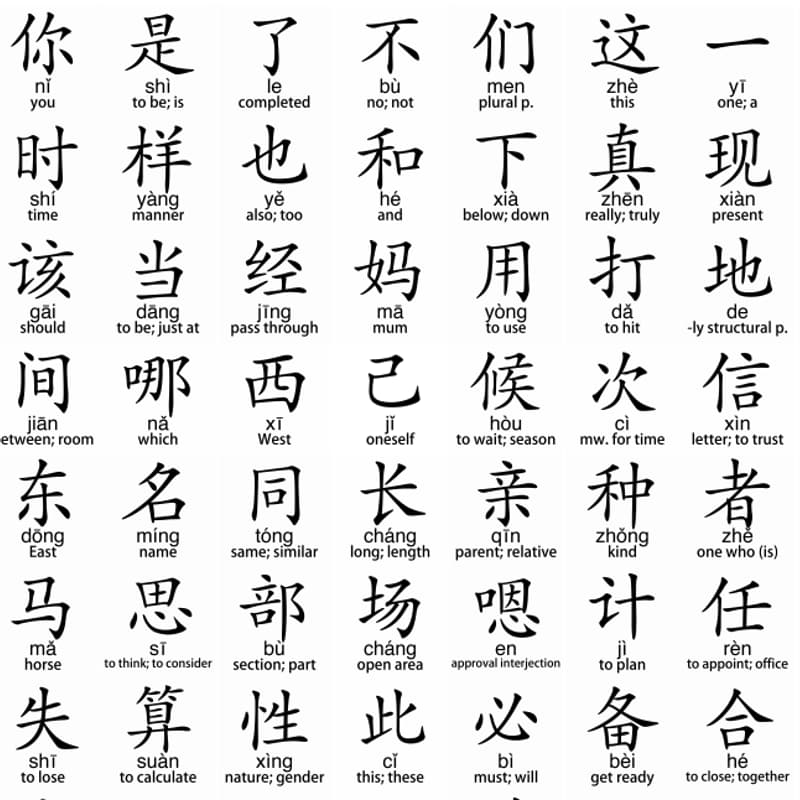 你 是 了 不 们 这 一
nǐ shì le bù men zhè yī
you to be; is completed no; not plural p. this one; a
时 样 也 和 下 真 现
shí yàng yě hé xià zhēn xiàn
time manner also; too and below; down really; truly present
该 当 经 妈 用 打 地
gāi dāng jīng mā yòng dǎ de
should to be; just at pass through mum to use to hit -ly structural p.
间 哪 西 己 候 次 信
jiān nǎ xī jǐ hòu cì xìn
etween; room which West oneself to wait; season mw. for time letter; to trust
东 名 同 长 亲 种 者
dōng míng tóng cháng qīn zhǒng zhě
East name same; similar long; length parent; relative kind one who (is)
马 思 部 场 嗯 计 任
mǎ sī bù cháng en jì rèn
horse to think; to consider section; part open area approval interjection to plan to appoint; office
失 算 性 此 必 备 合
shī suàn xìng cǐ bì bèi hé
to lose to calculate nature; gender this; these must; will get ready to close; together